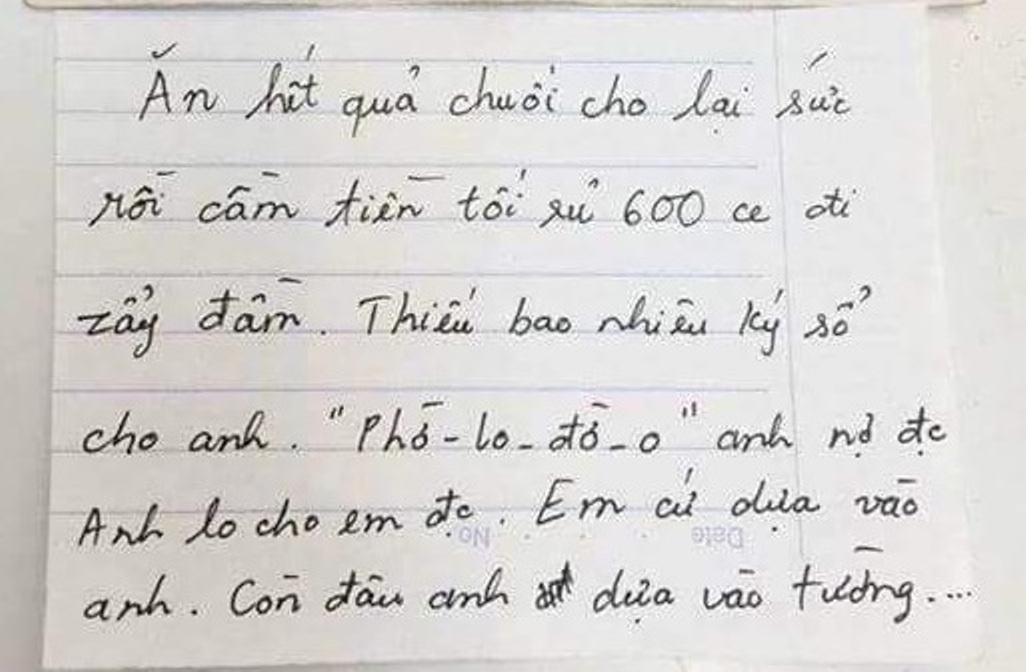 Ăn hết quả chuối cho lại sức
rồi cầm tiền tối rủ 600 ce đi
zẩy đầm. Thiếu bao nhiêu ký sổ
cho anh. "Phò-lo-đò-o" anh nợ đc
Anh lo cho em đc. Em cứ dựa vào
anh. Còn đâu anh dựa vào tường....
No
Date